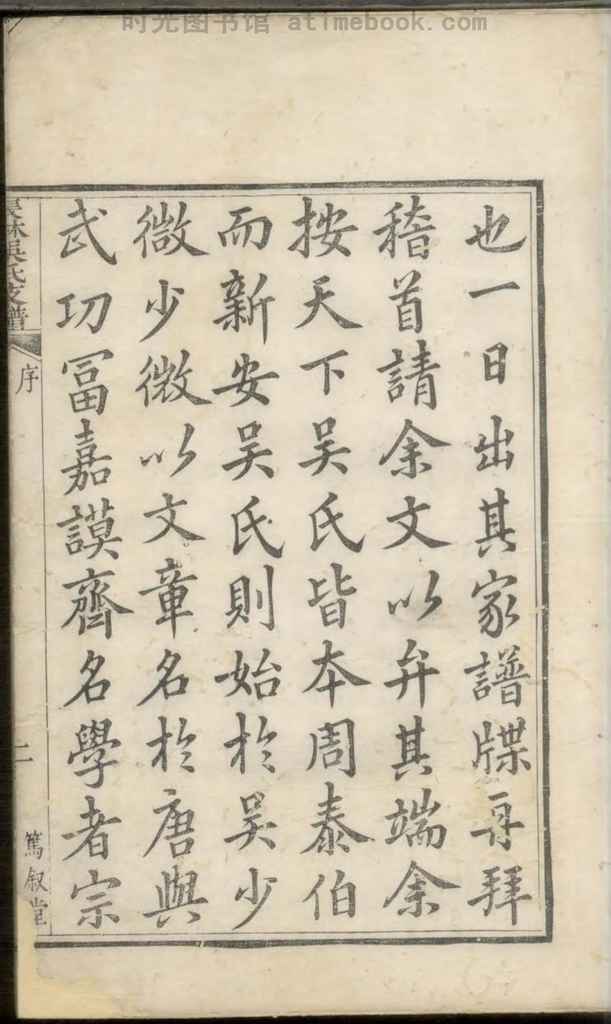 时光图书馆 atimebook.com
也一日出其家譜牒再拜
稽首請余文以弁其端余
按天下吴氏皆本周泰伯
而新安吴氏則始於吴少
微少微以文章名於唐與
武功冨嘉謨齊名學者宗
林吳氏支譜
序
二
篤叙堂